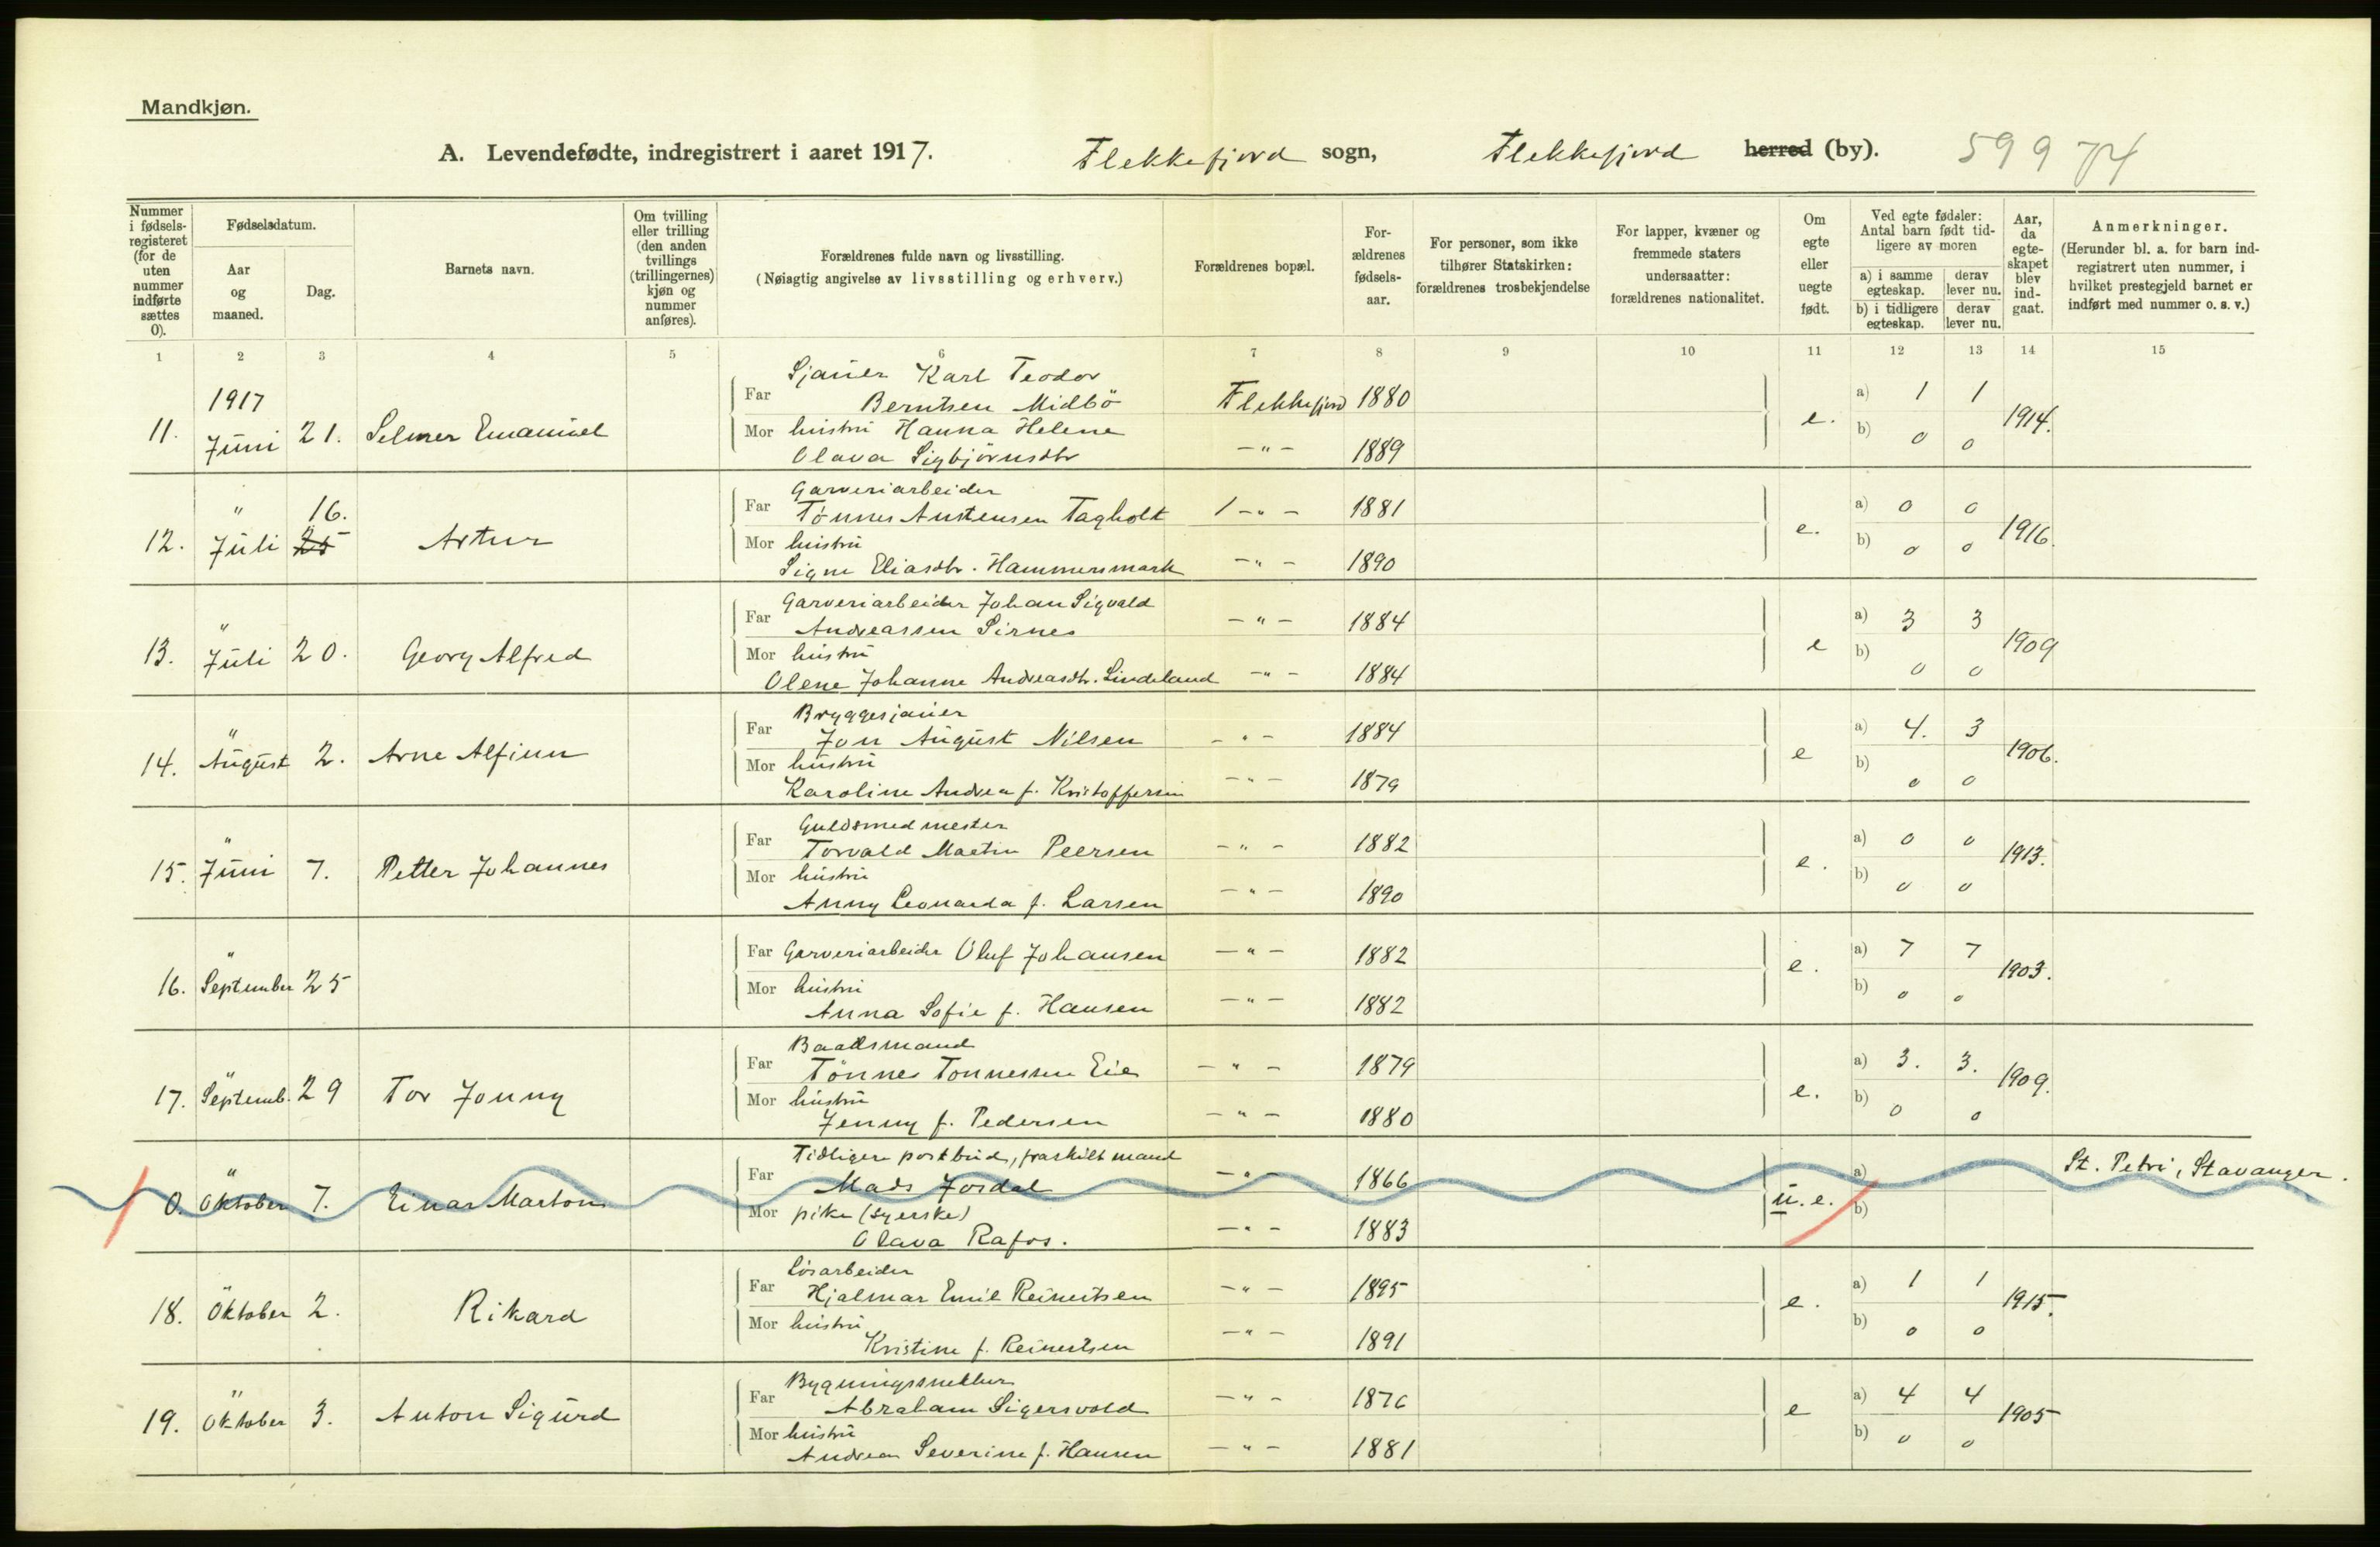 Mandkjøn.
A. Levendefødte, indregistrert i aaret 1917. Flekkefjord sogn, Flekkefjord herred (by). 599 74
Nummer i fødselsregisteret (for de uten nummer indførte sættes 0).
Fødselsdatum.
Aar og maaned.
Dag.
Barnets navn.
Om tvilling eller trilling (den anden tvillings (trillingernes) kjøn og nummer anføres).
Forældrenes fulde navn og livsstilling.
(Nøiagtig angivelse av livsstilling og erhverv.)
Forældrenes bopæl.
Forældrenes fødselsaar.
For personer, som ikke tilhører Statskirken: forældrenes trosbekjendelse
For lapper, kvæner og fremmede staters undersaatter: forældrenes nationalitet.
Om egte eller uegte født.
Ved egte fødsler: Antal barn født tidligere av moren
a) i samme egteskap. derav lever nu.
b) i tidligere egteskap. derav lever nu.
Aar, da egteskapet blev indgaat.
Anmerkninger.
(Herunder bl. a. for barn indregistrert uten nummer, i hvilket prestegjeld barnet er indført med nummer o. s. v.)
1 2 3 4 5 6 7 8 9 10 11 12 13 14 15
Sjauer Karl Teodor
1917 Far Berntsen Midbö Flekkefjord 1880 a) 1 1
11. Juni 21. Selmer Emanuel Mor hustru Hanna Helene e. b) 0 0 1914.
Olava Sigbjörnsdtr -"- 1889
Garveriarbeider
" 16. Far Tönnes Austensen Tagholt 1 -"- 1881 a) 0 0
12. Juli 25 Artur Mor hustru e. b) 0 0 1916.
Signe Eliasdtr. Hammersmark -"- 1890
Garveriarbeider Johan Sigvald
" Far Andreassen Sirnes -"- 1884 a) 3 3
13. Juli 20. Georg Alfred Mor hustru e b) 0 0 1909
Olene Johanne Andreasdtr. Lindeland -"- 1884
Bryggesjauer
" Far Jon August Nilsen -"- 1884 a) 4. 3
14. August 2. Arne Alfinn Mor hustru e b) 0 0 1906.
Karoline Andrea f. Kristoffersen -"- 1879
Guldsmedmester
" Far Torvald Martin Peersen -"- 1882 a) 0 0
15. Juni 7. Petter Johannes Mor hustru e. b) 0 0 1913.
Anny Leonarda f. Larsen -"- 1890
" Far Garveriarbeider Oluf Johansen -"- 1882 a) 7 7
16. September 25 Mor hustru e. b) 0 0 1903.
Anna Sofie f. Hansen -"- 1882
Baadsmand
" Far Tönnes Tonnessen Eie -"- 1879 a) 3. 3.
17. Septemb. 29 Tor Jonny Mor hustru e. b) 0 0 1909.
Jenny f. Pedersen -"- 1880
Tidligere postbud, fraskilt mand St. Petri, Stavanger.
" Far Mads Jordal -"- 1866 a)
0. Oktober 7. Einar Marton Mor pike (syerske) u. e. b)
Olava Rafos. -"- 1883
Lösarbeider
" Far Hjalmar Emil Reinertsen -"- 1895 a) 1 1
18. Oktober 2. Rikard Mor hustru e. b) 0 0 1915.
Kristine f. Reinertsen -"- 1891
Bygningssnekker
" Far Abraham Sigersvold -"- 1876 a) 4 4
19. Oktober 3. Anton Sigurd Mor hustru e b) 0 0 1905
Andrea Severine f. Hansen -"- 1881